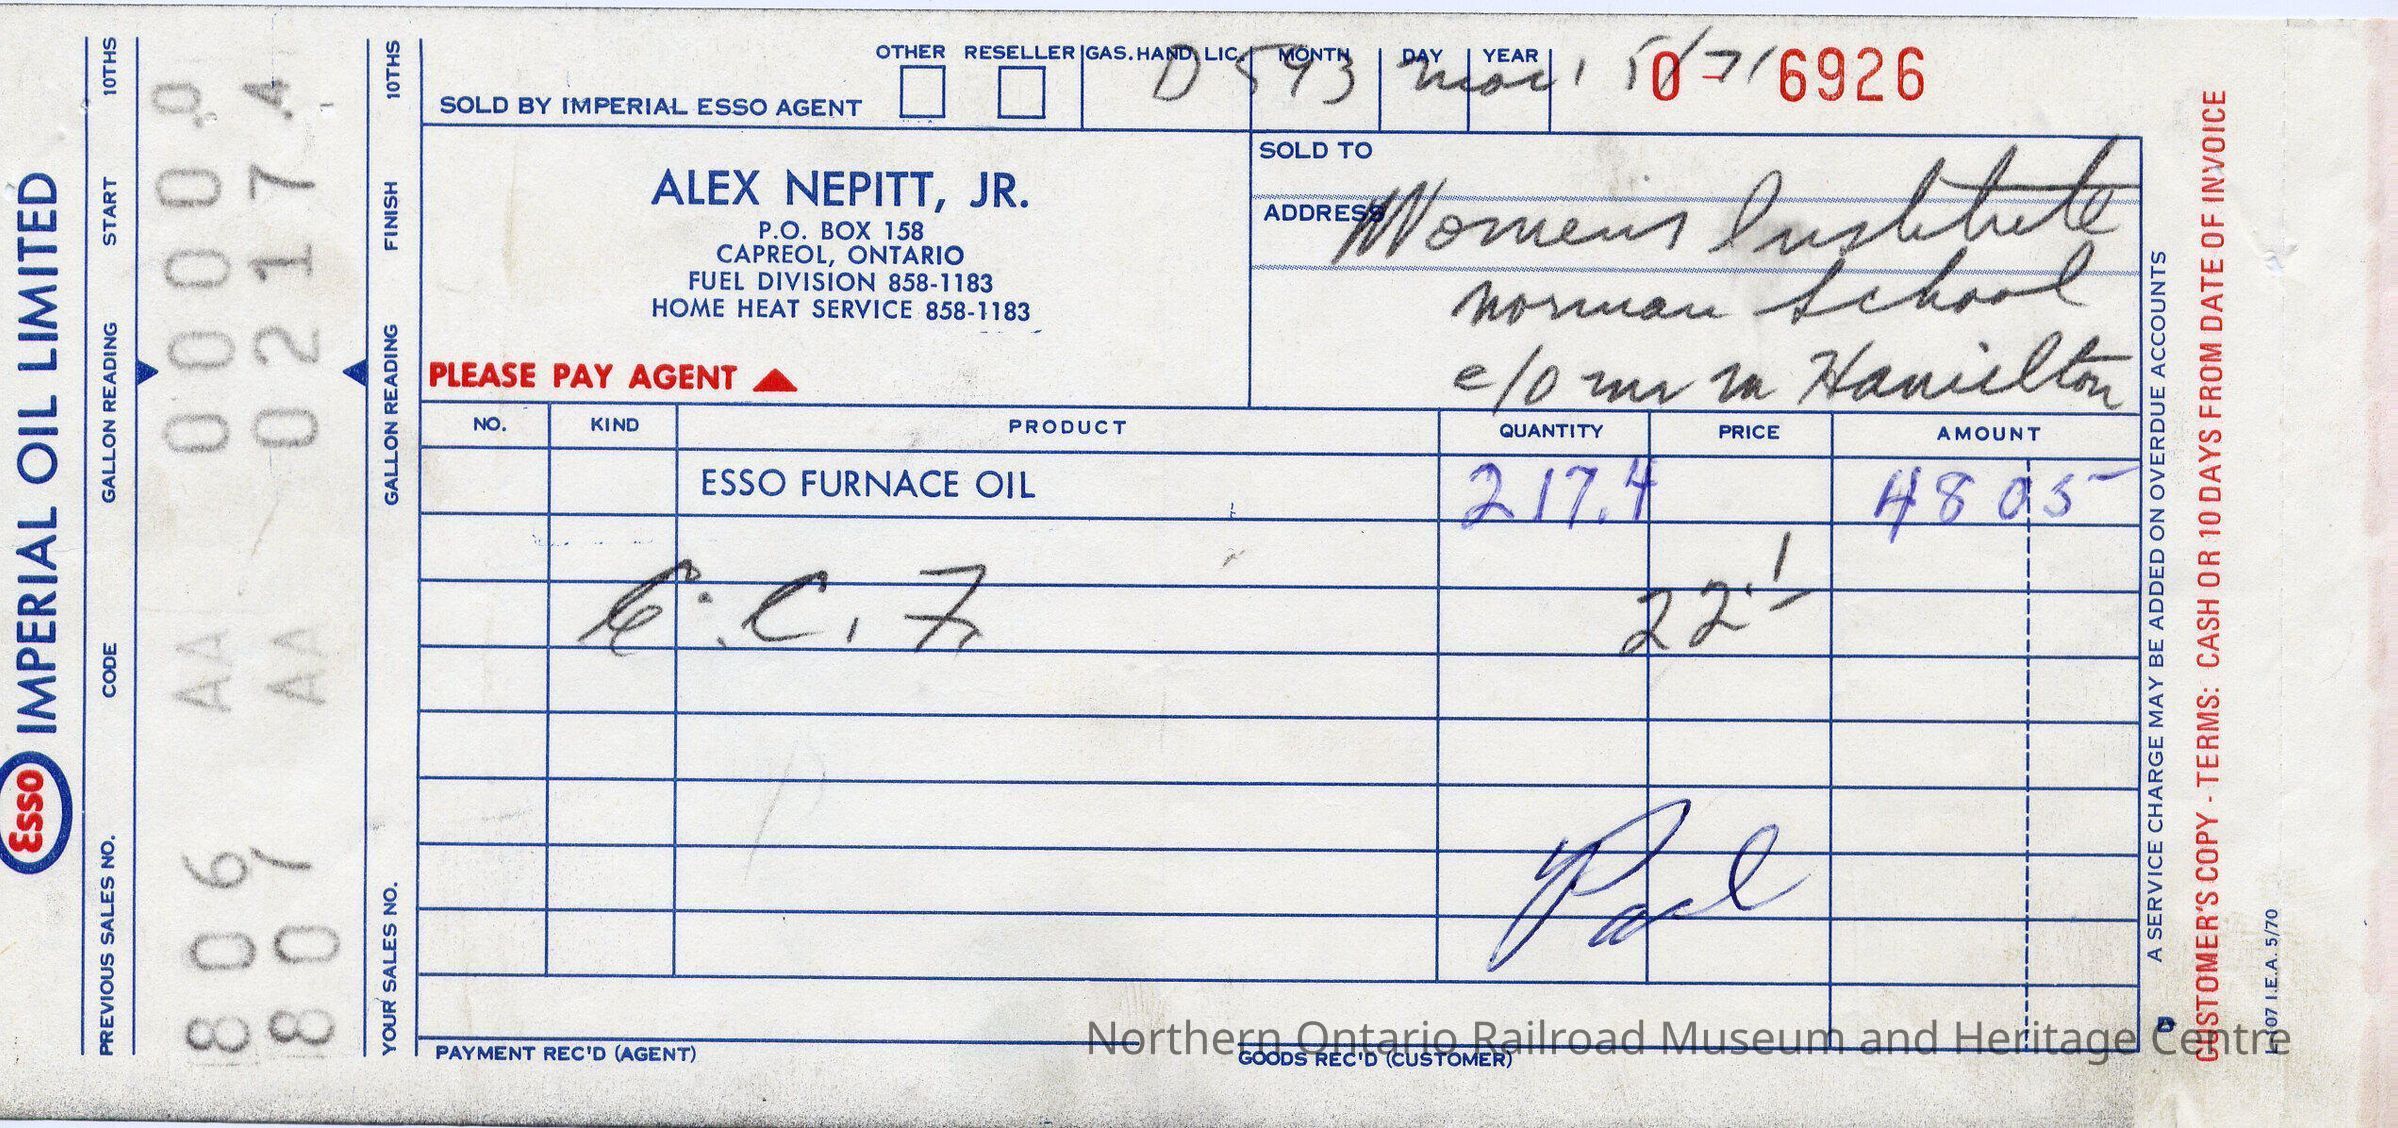 ESSO IMPERIAL OIL LIMITED
PREVIOUS SALES NO. CODE GALLON READING START 10THS
806 AA 0000.0
807 AA 0217.4
YOUR SALES NO. GALLON READING FINISH 10THS
OTHER RESELLER GAS. HAND. LIC. MONTH DAY YEAR
SOLD BY IMPERIAL ESSO AGENT
D 593 Mar 15/71
0-6926
ALEX NEPITT, JR.
P.O. BOX 158
CAPREOL, ONTARIO
FUEL DIVISION 858-1183
HOME HEAT SERVICE 858-1183
PLEASE PAY AGENT
SOLD TO
ADDRESS
Womens Institute
Norman School
c/o Mr M Hamilton
NO. KIND PRODUCT QUANTITY PRICE AMOUNT
ESSO FURNACE OIL 217.4 48 05
C.C.F. 22.1
Pad
PAYMENT REC'D (AGENT) GOODS REC'D (CUSTOMER)
A SERVICE CHARGE MAY BE ADDED ON OVERDUE ACCOUNTS
CUSTOMER'S COPY - TERMS: CASH OR 10 DAYS FROM DATE OF INVOICE
I.E.A. 5/70
Northern Ontario Railroad Museum and Heritage Centre